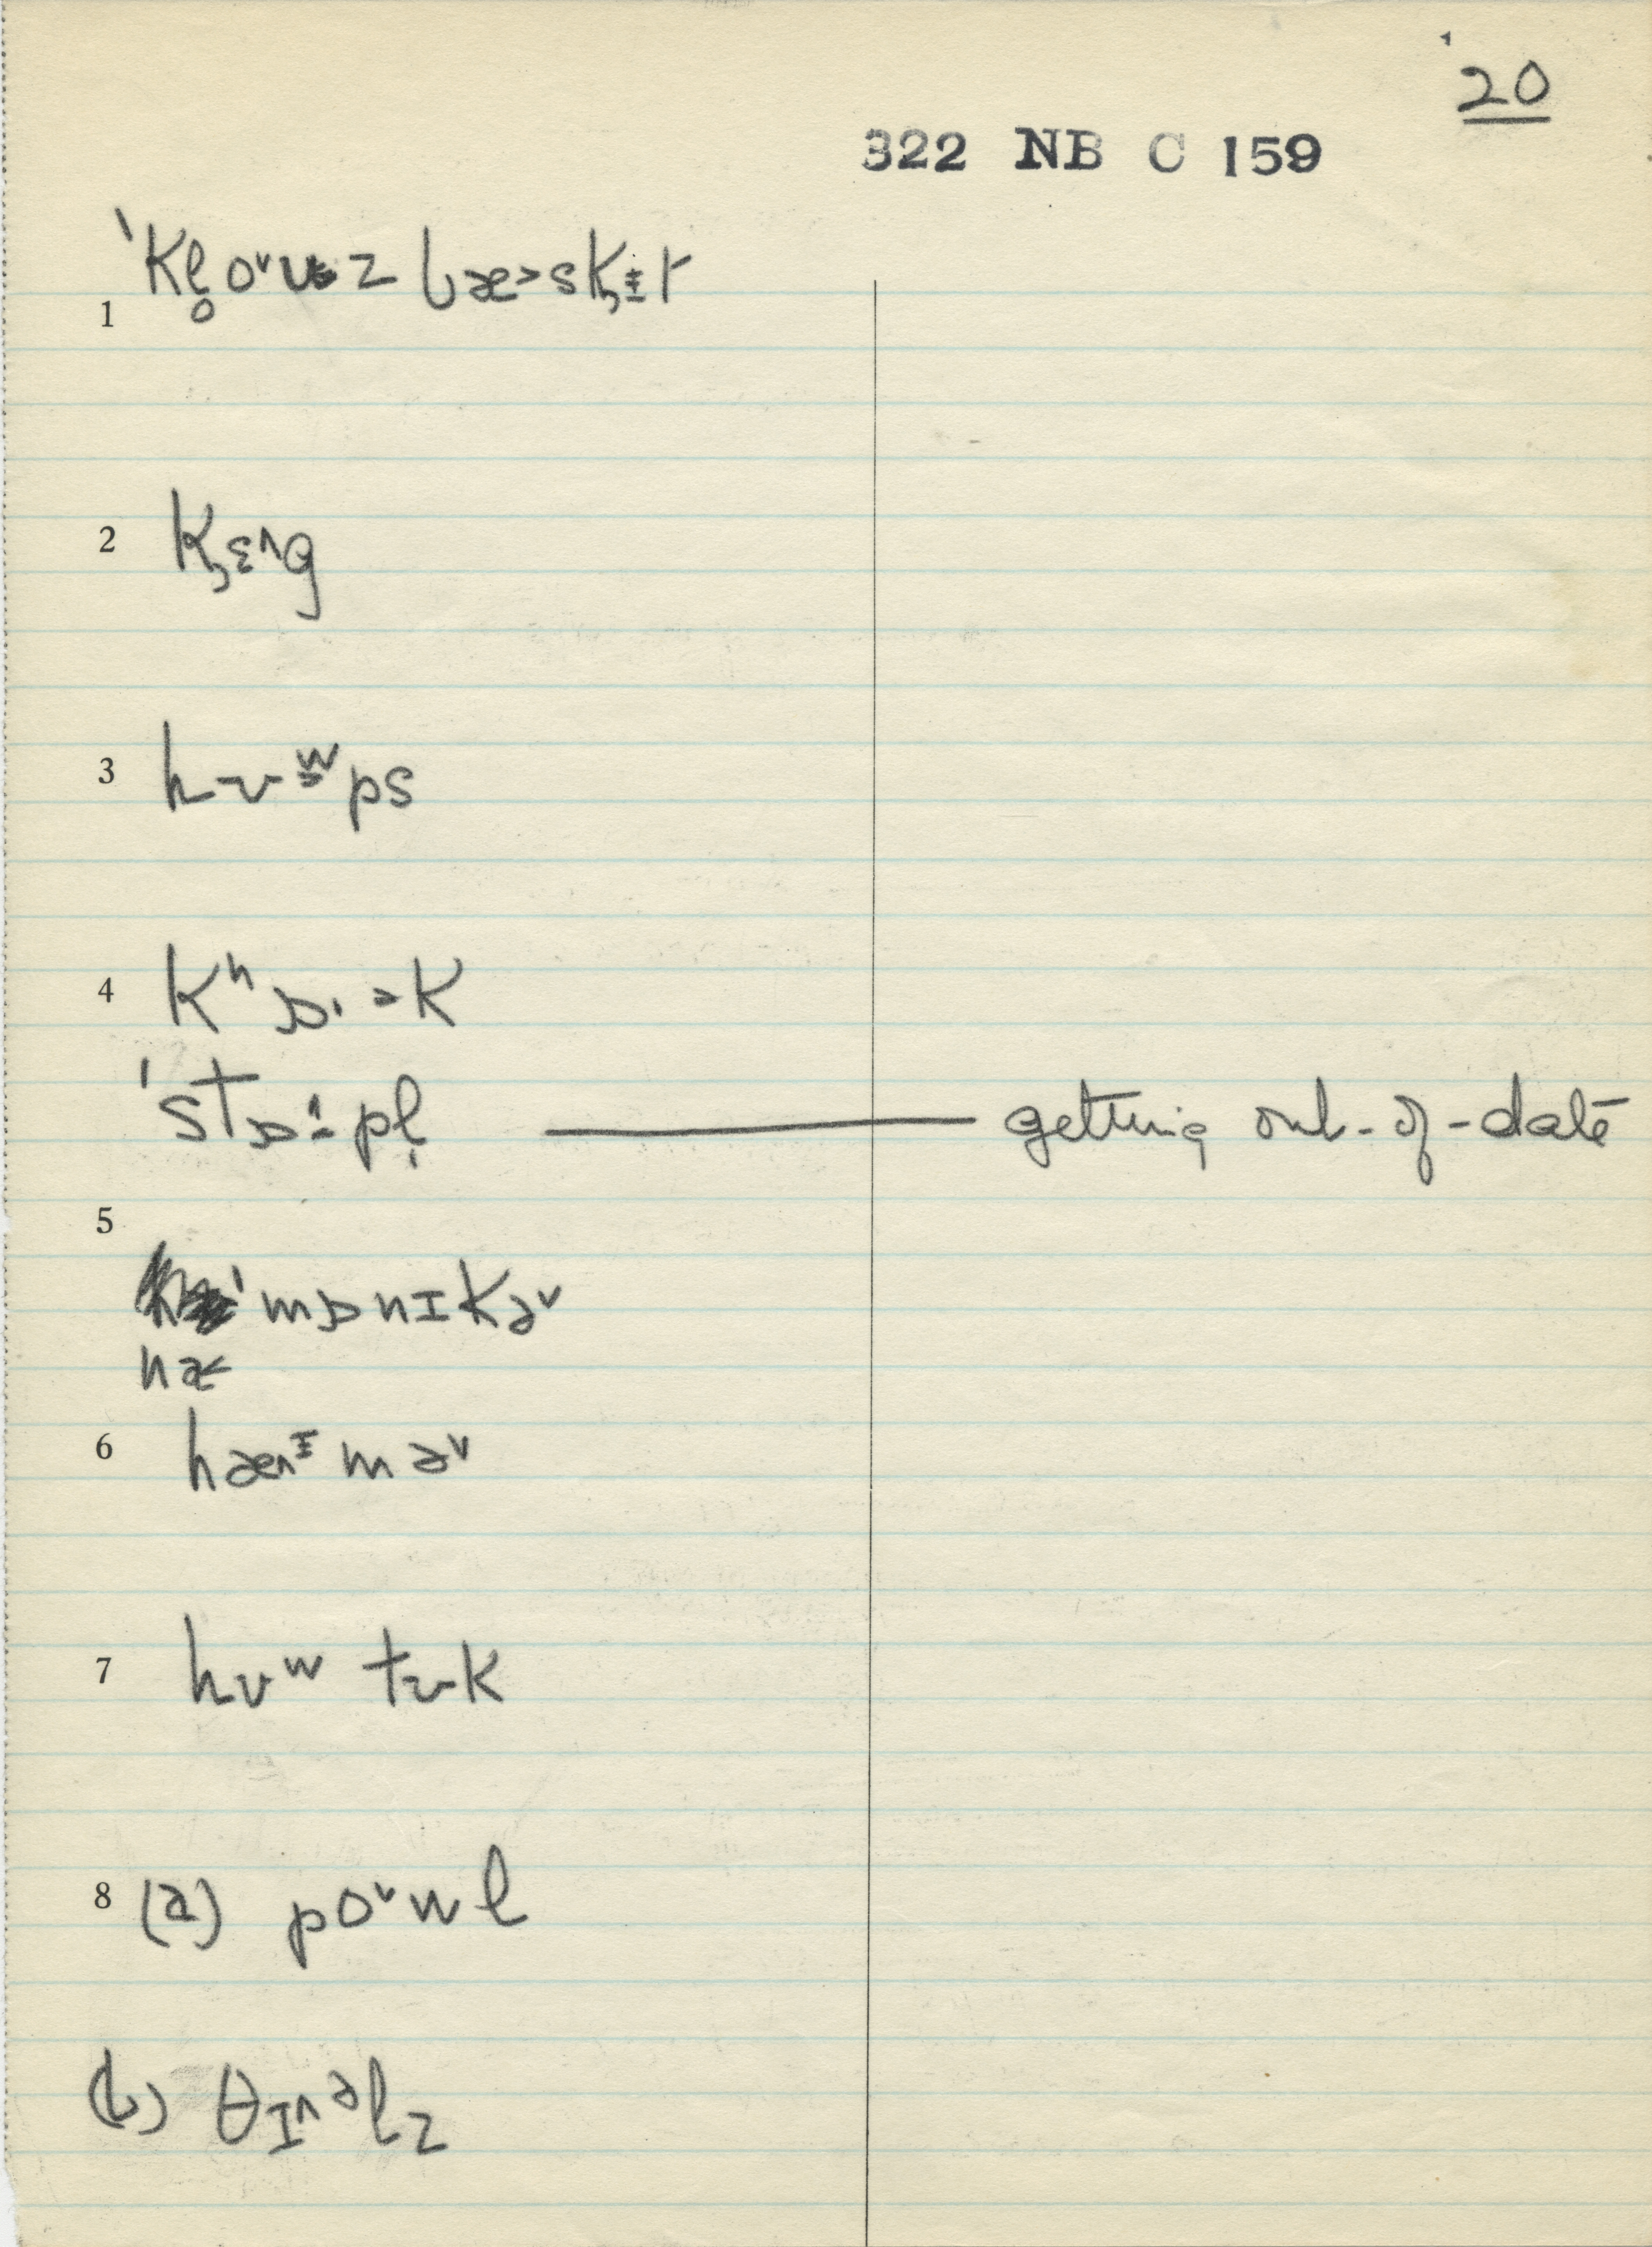 20
322 NB C 159
1 ˈkl̥oˇʊz bæ˃sk̡ɨt
2 k̡ɛ^g
3 hʊʷps
4 kʰɒ·ək
ˈstɒ·pl̩ — getting out-of-date
5
ˈmɒnɪkəˇ
hæ
6 hæ^ɪməˇ
7 hʊʷ tʊk
8 (a) poˇwl
(b) θɪ^əlz